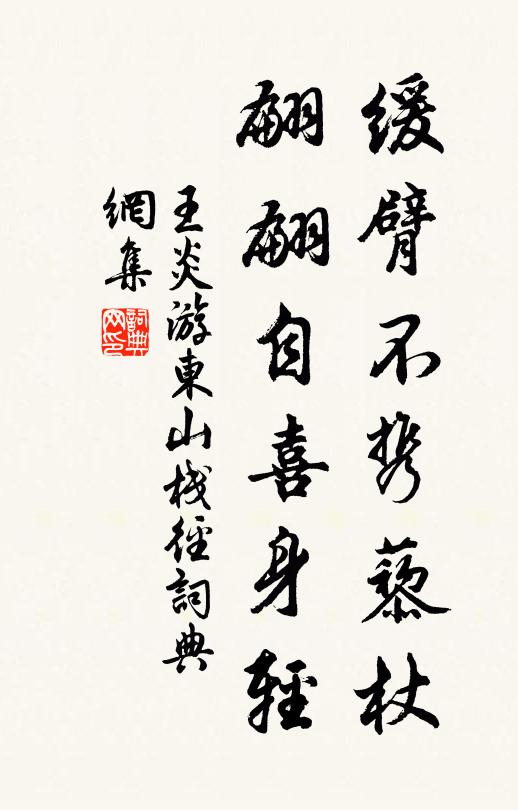 缓臂不携藜杖
翩翩自喜身輕
王炎游東山栈徑詞典
網集
詞典网印